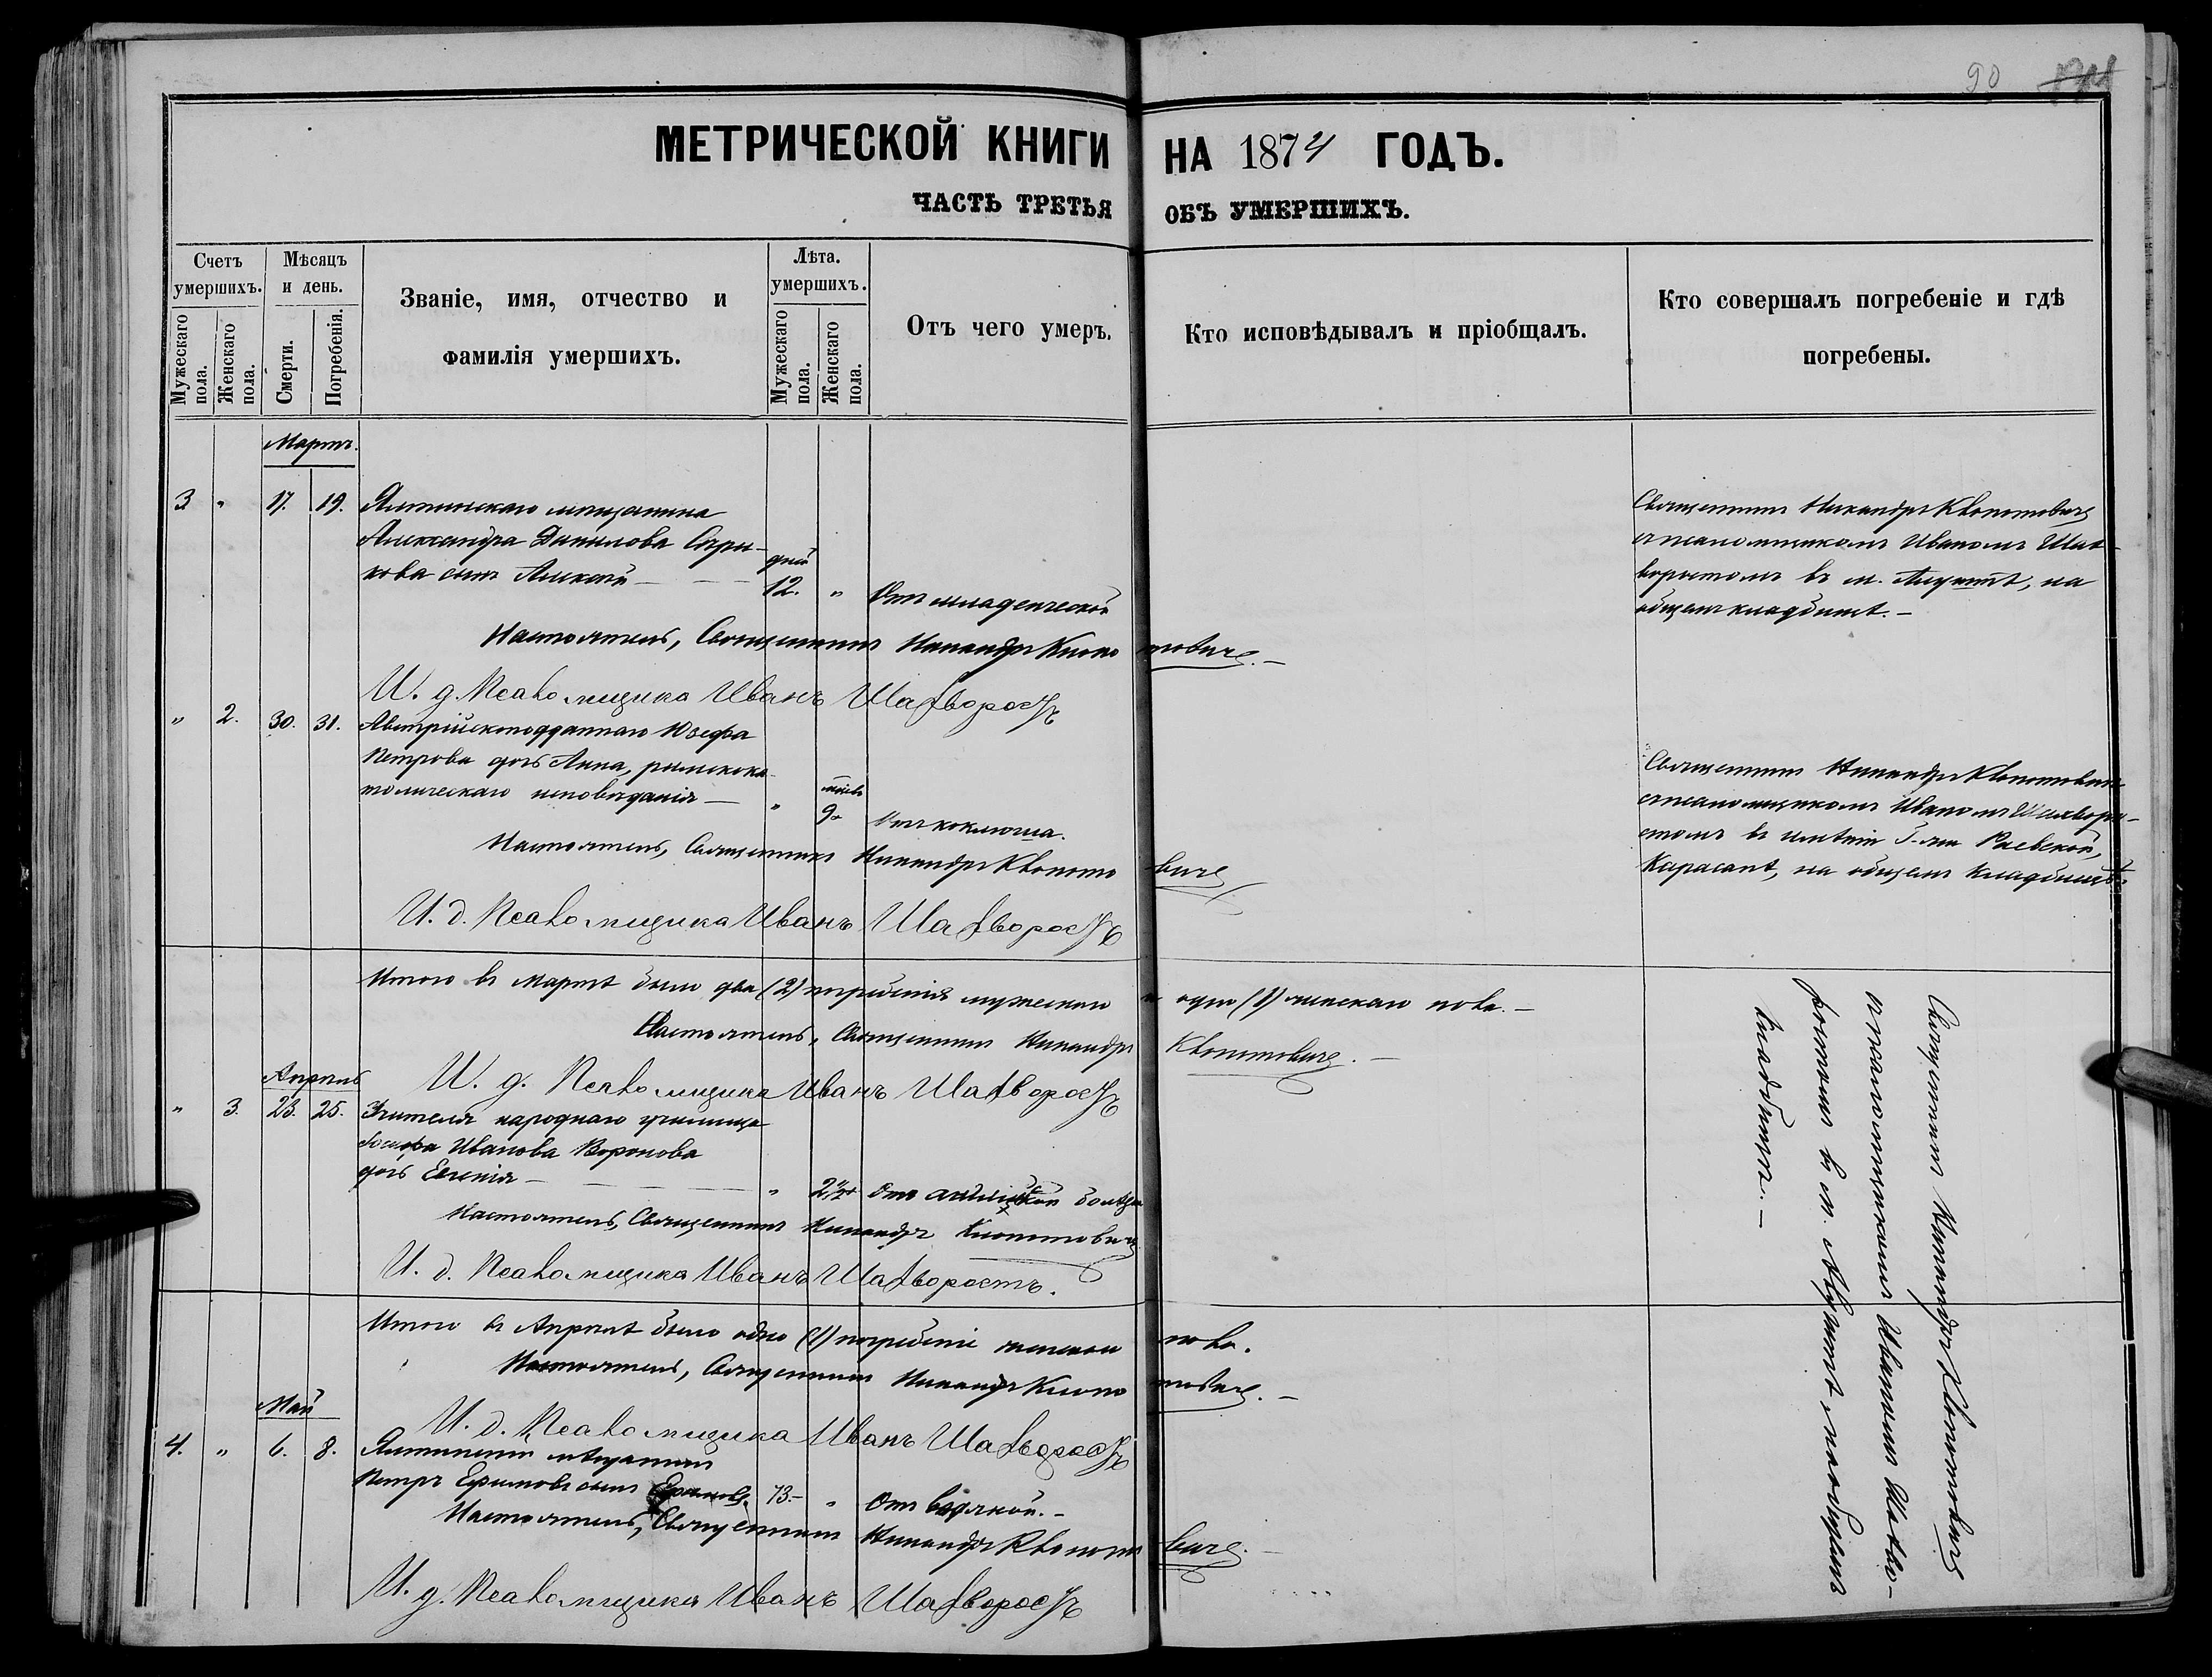 90
МЕТРИЧЕСКОЙ КНИГИ НА 1874 ГОДЪ.
ЧАСТЬ ТРЕТЬЯ ОБЪ УМЕРШИХЪ.
Счетъ умершихъ.
Мужескаго пола.
Женскаго пола.
Мѣсяцъ и день.
Смерти.
Погребенія.
Званіе, имя, отчество и
фамилія умершихъ.
Лѣта. умершихъ.
Мужескаго пола.
Женскаго пола.
Отъ чего умеръ.
Кто исповѣдывалъ и пріобщалъ.
Кто совершалъ погребеніе и гдѣ
погребены.
Мартъ.
3 " 17. 19. Ялтинскаго мѣщанина
Александра Данилова
сынъ Алексѣй — дней 12. " Отъ младенческой
Священникъ Никандръ Клопотовичъ
съ псаломщикомъ Иваномъ Шах-
воростомъ въ м. Алуштѣ, на
общемъ кладбищѣ. —
Настоятель, Священникъ Никандръ Клопотовичъ. —
И. д. Псаломщика Иванъ Шахворостъ
" 2. 30. 31. Австрійскоподданнаго Юзефа
Петрова дочь Анна, римскока-
толическаго исповѣданія — " мѣсяцъ 9. Отъ коклюша.
Священникъ Никандръ Клопотовичъ
съ псаломщикомъ Иваномъ Шахворо-
стомъ въ имѣніи Г-жи Раевской,
Карасанъ, на общемъ кладбищѣ.
Настоятель, Священникъ Никандръ Клопотовичъ
И. д. Псаломщика Иванъ Шахворостъ
Итого въ Мартѣ было два (2) погребенія мужескаго и одно (1) женскаго пола. —
Настоятель, Священникъ Никандръ Клопотовичъ. —
И. д. Псаломщика Иванъ Шахворостъ
Апрѣль
" 3. 23. 25. Учителя народнаго училища
Іосифа Иванова Воронова
дочь Евгенія — " 2½ Отъ англійской болѣзни
Настоятель, Священникъ Никандръ Клопотовичъ
И. д. Псаломщика Иванъ Шахворостъ.
Священникъ Никандръ Клопотовичъ
съ псаломщикомъ Иваномъ Шахво-
ростомъ въ м. Алуштѣ на общемъ
кладбищѣ. —
Итого въ Апрѣлѣ было одно (1) погребеніе женскаго пола.
Настоятель, Священникъ Никандръ Клопотовичъ. —
И. д. Псаломщика Иванъ Шахворостъ
Май
4. " 6. 8. Ялтинскій мѣщанинъ
Петръ Ефимовъ сынъ 73. — " Отъ водяной. —
Настоятель, Священникъ Никандръ Клопотовичъ. —
И. д. Псаломщика Иванъ Шахворостъ